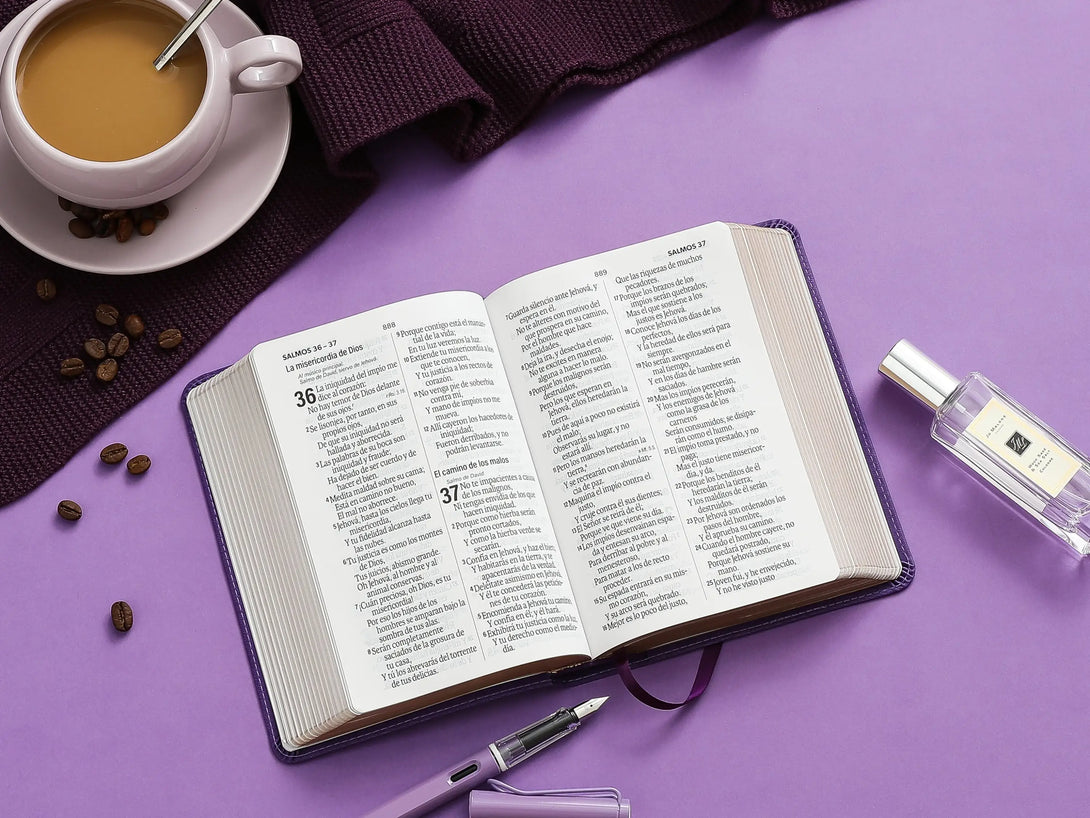 888
SALMOS 36 – 37
La misericordia de Dios
Al músico principal.
Salmo de David, siervo de Jehová.
36 La iniquidad del impío me
dice al corazón:
No hay temor de Dios delante
de sus ojos.
2 Se lisonjea, por tanto, en sus
propios ojos,
De que su iniquidad no será
hallada y aborrecida.
3 Las palabras de su boca son
iniquidad y fraude;
Ha dejado de ser cuerdo y de
hacer el bien.
4 Medita maldad sobre su cama;
Está en camino no bueno,
El mal no aborrece.
5 Jehová, hasta los cielos llega tu
misericordia,
Y tu fidelidad alcanza hasta
las nubes.
6 Tu justicia es como los montes
de Dios,
Tus juicios, abismo grande.
Oh Jehová, al hombre y al
animal conservas.
7 ¡Cuán preciosa, oh Dios, es tu
misericordia!
Por eso los hijos de los
hombres se amparan bajo la
sombra de tus alas.
8 Serán completamente
saciados de la grosura de
tu casa,
Y tú los abrevarás del torrente
de tus delicias.
9 Porque contigo está el manan-
tial de la vida;
En tu luz veremos la luz.
10 Extiende tu misericordia a los
que te conocen,
Y tu justicia a los rectos de
corazón.
11 No venga pie de soberbia
contra mí,
Y mano de impíos no me
mueva.
12 Allí cayeron los hacedores de
iniquidad;
Fueron derribados, y no
podrán levantarse.
El camino de los malos
Salmo de David.
37 No te impacientes a causa
de los malignos,
Ni tengas envidia de los que
hacen iniquidad.
2 Porque como hierba serán
pronto cortados,
Y como la hierba verde se
secarán.
3 Confía en Jehová, y haz el bien;
Y habitarás en la tierra, y te
apacentarás de la verdad.
4 Deléitate asimismo en Jehová,
Y él te concederá las peticio-
nes de tu corazón.
5 Encomienda a Jehová tu camino,
Y confía en él; y él hará.
6 Exhibirá tu justicia como la luz,
Y tu derecho como el medio-
día.
889
SALMOS 37
7 Guarda silencio ante Jehová, y
espera en él.
No te alteres con motivo del
que prospera en su camino,
Por el hombre que hace
maldades.
8 Deja la ira, y desecha el enojo;
No te excites en manera
alguna a hacer lo malo.
9 Porque los malignos serán
destruidos,
Pero los que esperan en
Jehová, ellos heredarán la
tierra.
10 Pues de aquí a poco no existirá
el malo;
Observarás su lugar, y no
estará allí.
11 Pero los mansos heredarán la
tierra,
Y se recrearán con abundan-
cia de paz.
12 Maquina el impío contra el
justo,
Y cruje contra él sus dientes;
13 El Señor se reirá de él;
Porque ve que viene su día.
14 Los impíos desenvainan espa-
da y entesan su arco,
Para derribar al pobre y al
menesteroso,
Para matar a los de recto
proceder.
15 Su espada entrará en su mis-
mo corazón,
Y su arco será quebrado.
16 Mejor es lo poco del justo,
Que las riquezas de muchos
pecadores.
17 Porque los brazos de los
impíos serán quebrados;
Mas el que sostiene a los
justos es Jehová.
18 Conoce Jehová los días de los
perfectos,
Y la heredad de ellos será para
siempre.
19 No serán avergonzados en el
mal tiempo,
Y en los días de hambre serán
saciados.
20 Mas los impíos perecerán,
Y los enemigos de Jehová
como la grasa de los
carneros
Serán consumidos; se disipa-
rán como el humo.
21 El impío toma prestado, y no
paga;
Mas el justo tiene misericor-
dia, y da.
22 Porque los benditos de él
heredarán la tierra;
Y los malditos de él serán
destruidos.
23 Por Jehová son ordenados los
pasos del hombre,
Y él aprueba su camino.
24 Cuando el hombre cayere, no
quedará postrado,
Porque Jehová sostiene su
mano.
25 Joven fui, y he envejecido,
Y no he visto justo
Jo Malone
London
Wood Sage
& Sea Salt
Cologne